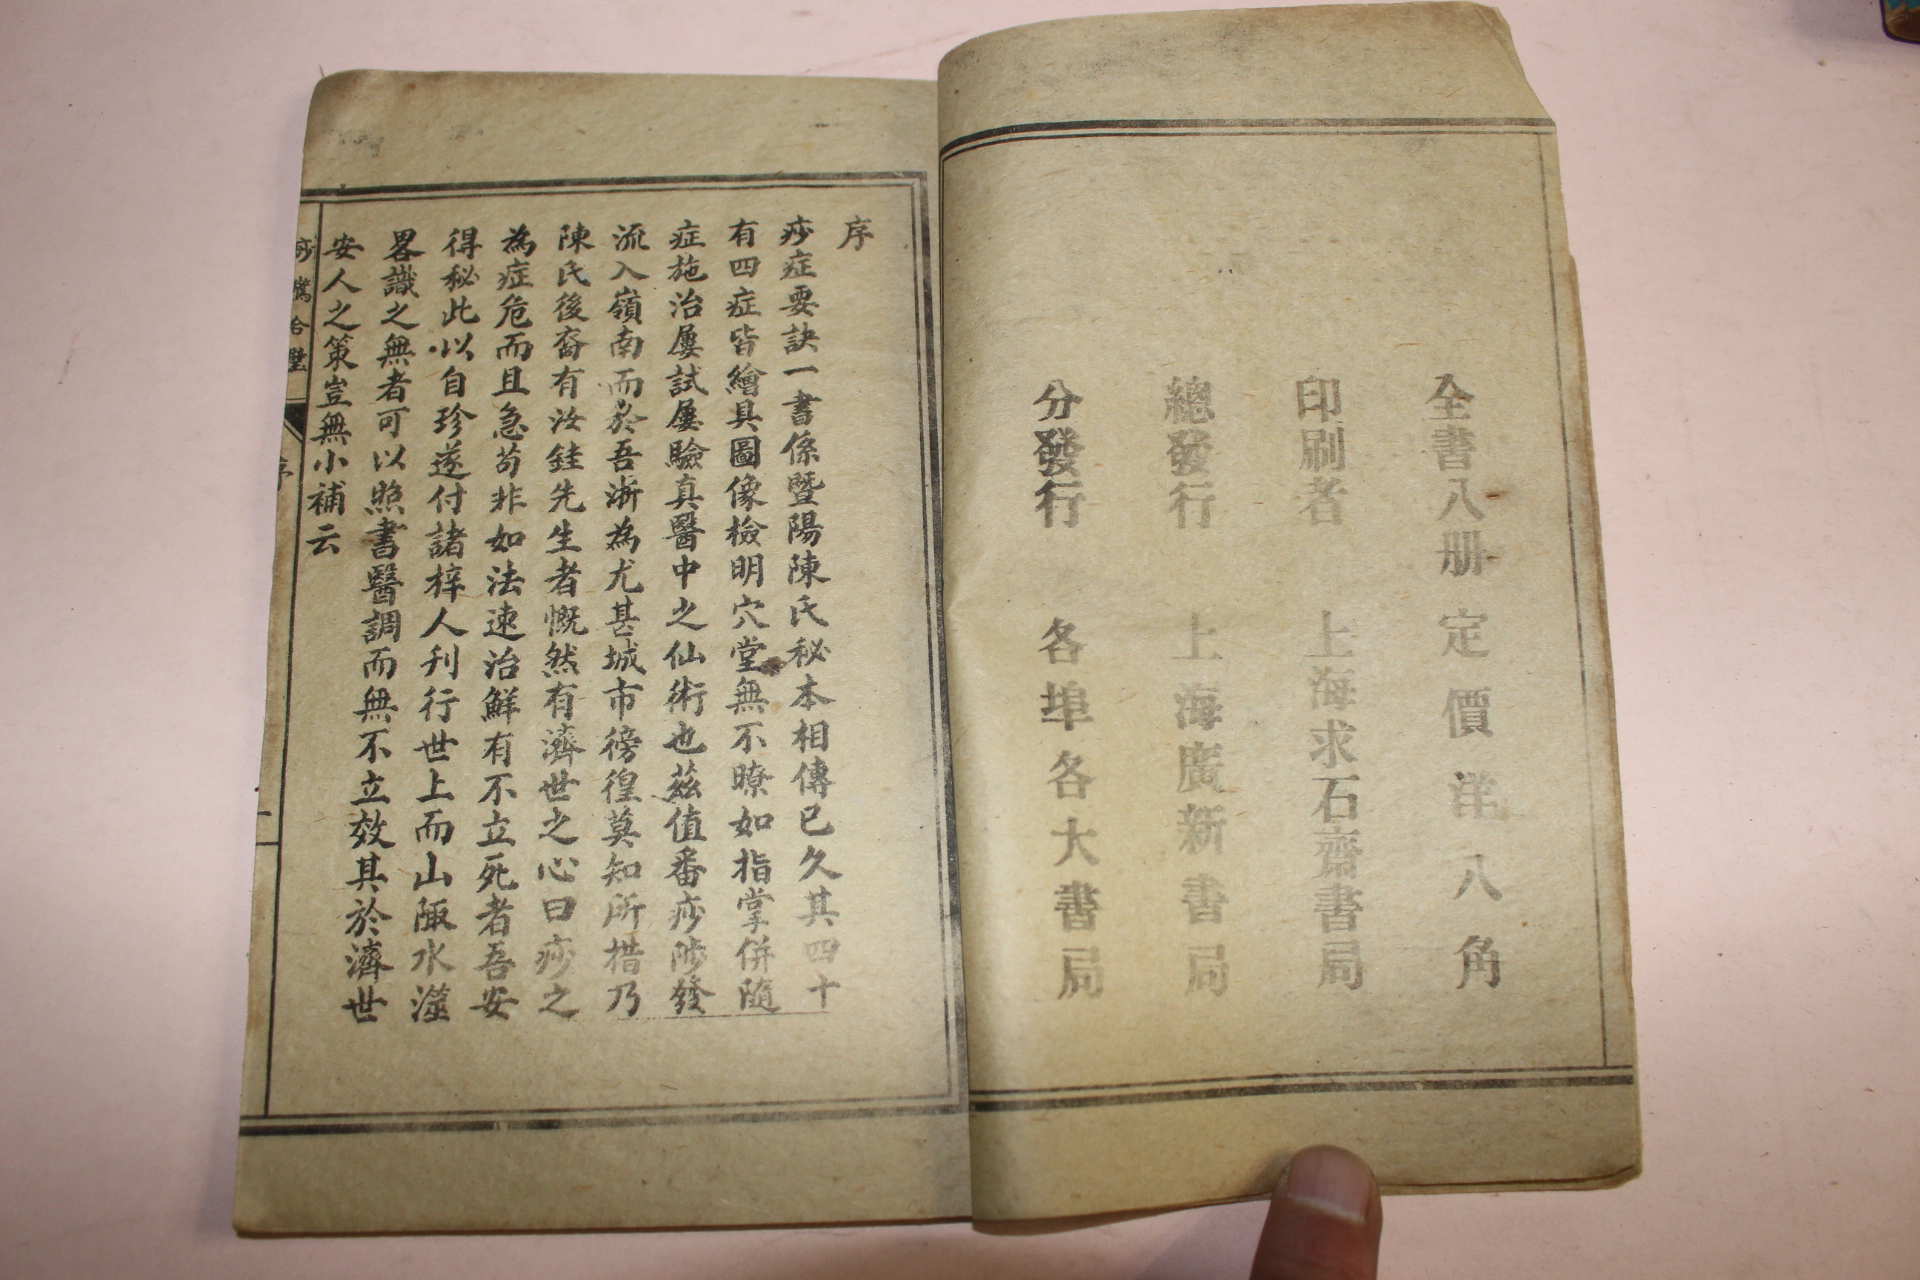 全書八册定價洋八角
印刷者 上海求石齋書局
總發行 上海廣新書局
分發行 各埠各大書局
序
痧症要訣一書係暨陽陳氏秘本相傳已久其四十
有四症皆繪具圖像檢明穴堂無不瞭如指掌併隨
症施治屢試屢驗真醫中之仙術也茲值番痧陟發
流入嶺南而於吾浙為尤甚城市徬徨莫知所措乃
陳氏後裔有汝銈先生者慨然有濟世之心曰痧之
為症危而且急苟非如法速治鮮有不立死者吾安
得秘此以自珍遂付諸梓人刋行世上而山陬水澨
畧識之無者可以照書醫調而無不立效其於濟世
安人之策豈無小補云
序
一